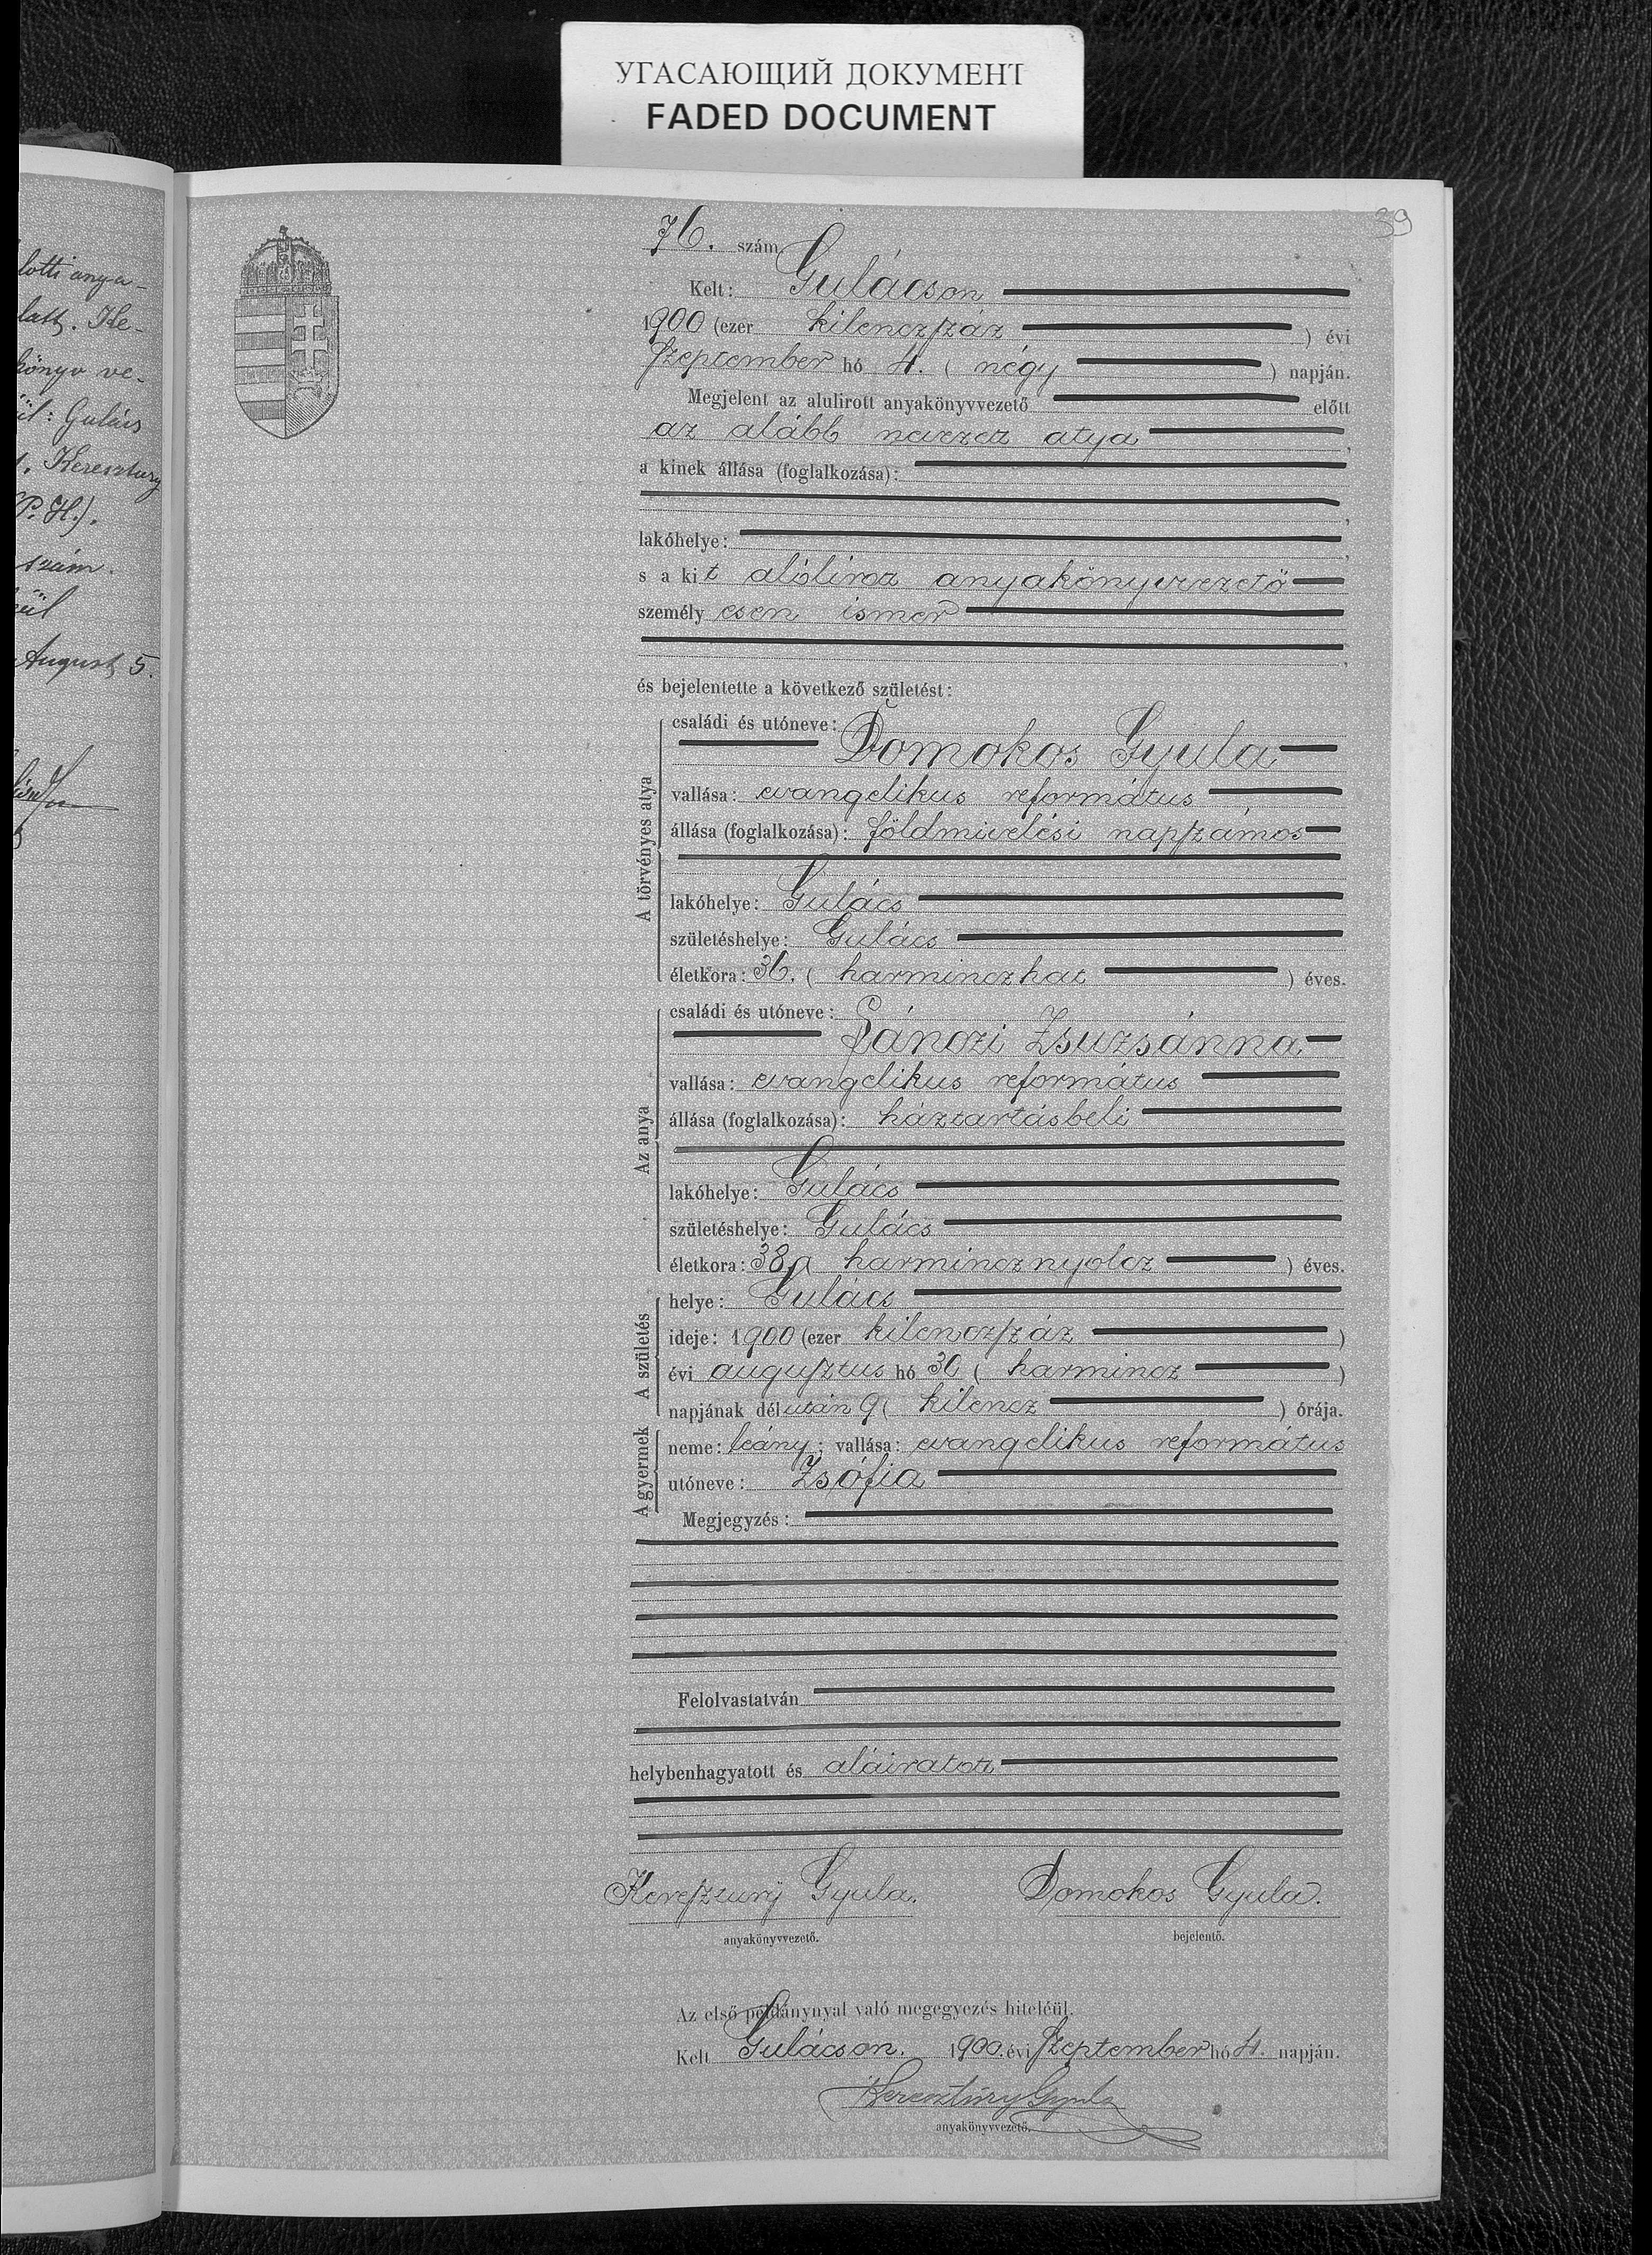 УГАСАЮЩИЙ ДОКУМЕНТ
FADED DOCUMENT
39
lotti anya-
latt. Ke-
könyv ve-
ül: Gulács
Keresztury
P. H.).
szám.
ül
August 5.
76. szám
Kelt: Gulácson
1900 (ezer kilenczszáz ) évi
Szeptember hó 4. ( négy ) napján.
Megjelent az alulirott anyakönyvvezető előtt
az alább nevezett atya ,
a kinek állása (foglalkozása):
,
lakóhelye: ,
s a kit alólirott anyakönyvvezető
személyesen ismer
,
és bejelentette a következő születést:
A törvényes atya
családi és utóneve:
Domokos Gyula
vallása: evangelikus református
állása (foglalkozása): földmivelési napszámos
lakóhelye: Gulács
születéshelye: Gulács
életkora: 36. ( harminczhat ) éves.
Az anya
családi és utóneve:
Sánczi Zsuzsánna
vallása: evangelikus református
állása (foglalkozása): háztartásbeli
lakóhelye: Gulács
születéshelye: Gulács
életkora: 38. ( harmincznyolcz ) éves.
A születés
helye: Gulács
ideje: 1900 (ezer kilenczszáz )
évi augusztus hó 30 ( harmincz )
napjának délután 9 ( kilencz ) órája.
A gyermek
neme: leány; vallása: evangelikus református
utóneve: Zsófia
Megjegyzés:
Felolvastatván
helybenhagyatott és aláiratott
Keresztury Gyula. Domokos Gyula.
anyakönyvvezető. bejelentő.
Az első példánynyal való megegyezés hiteléül.
Kelt Gulácson. 1900. évi Szeptember hó 4. napján.
Keresztúry Gyula
anyakönyvvezető.